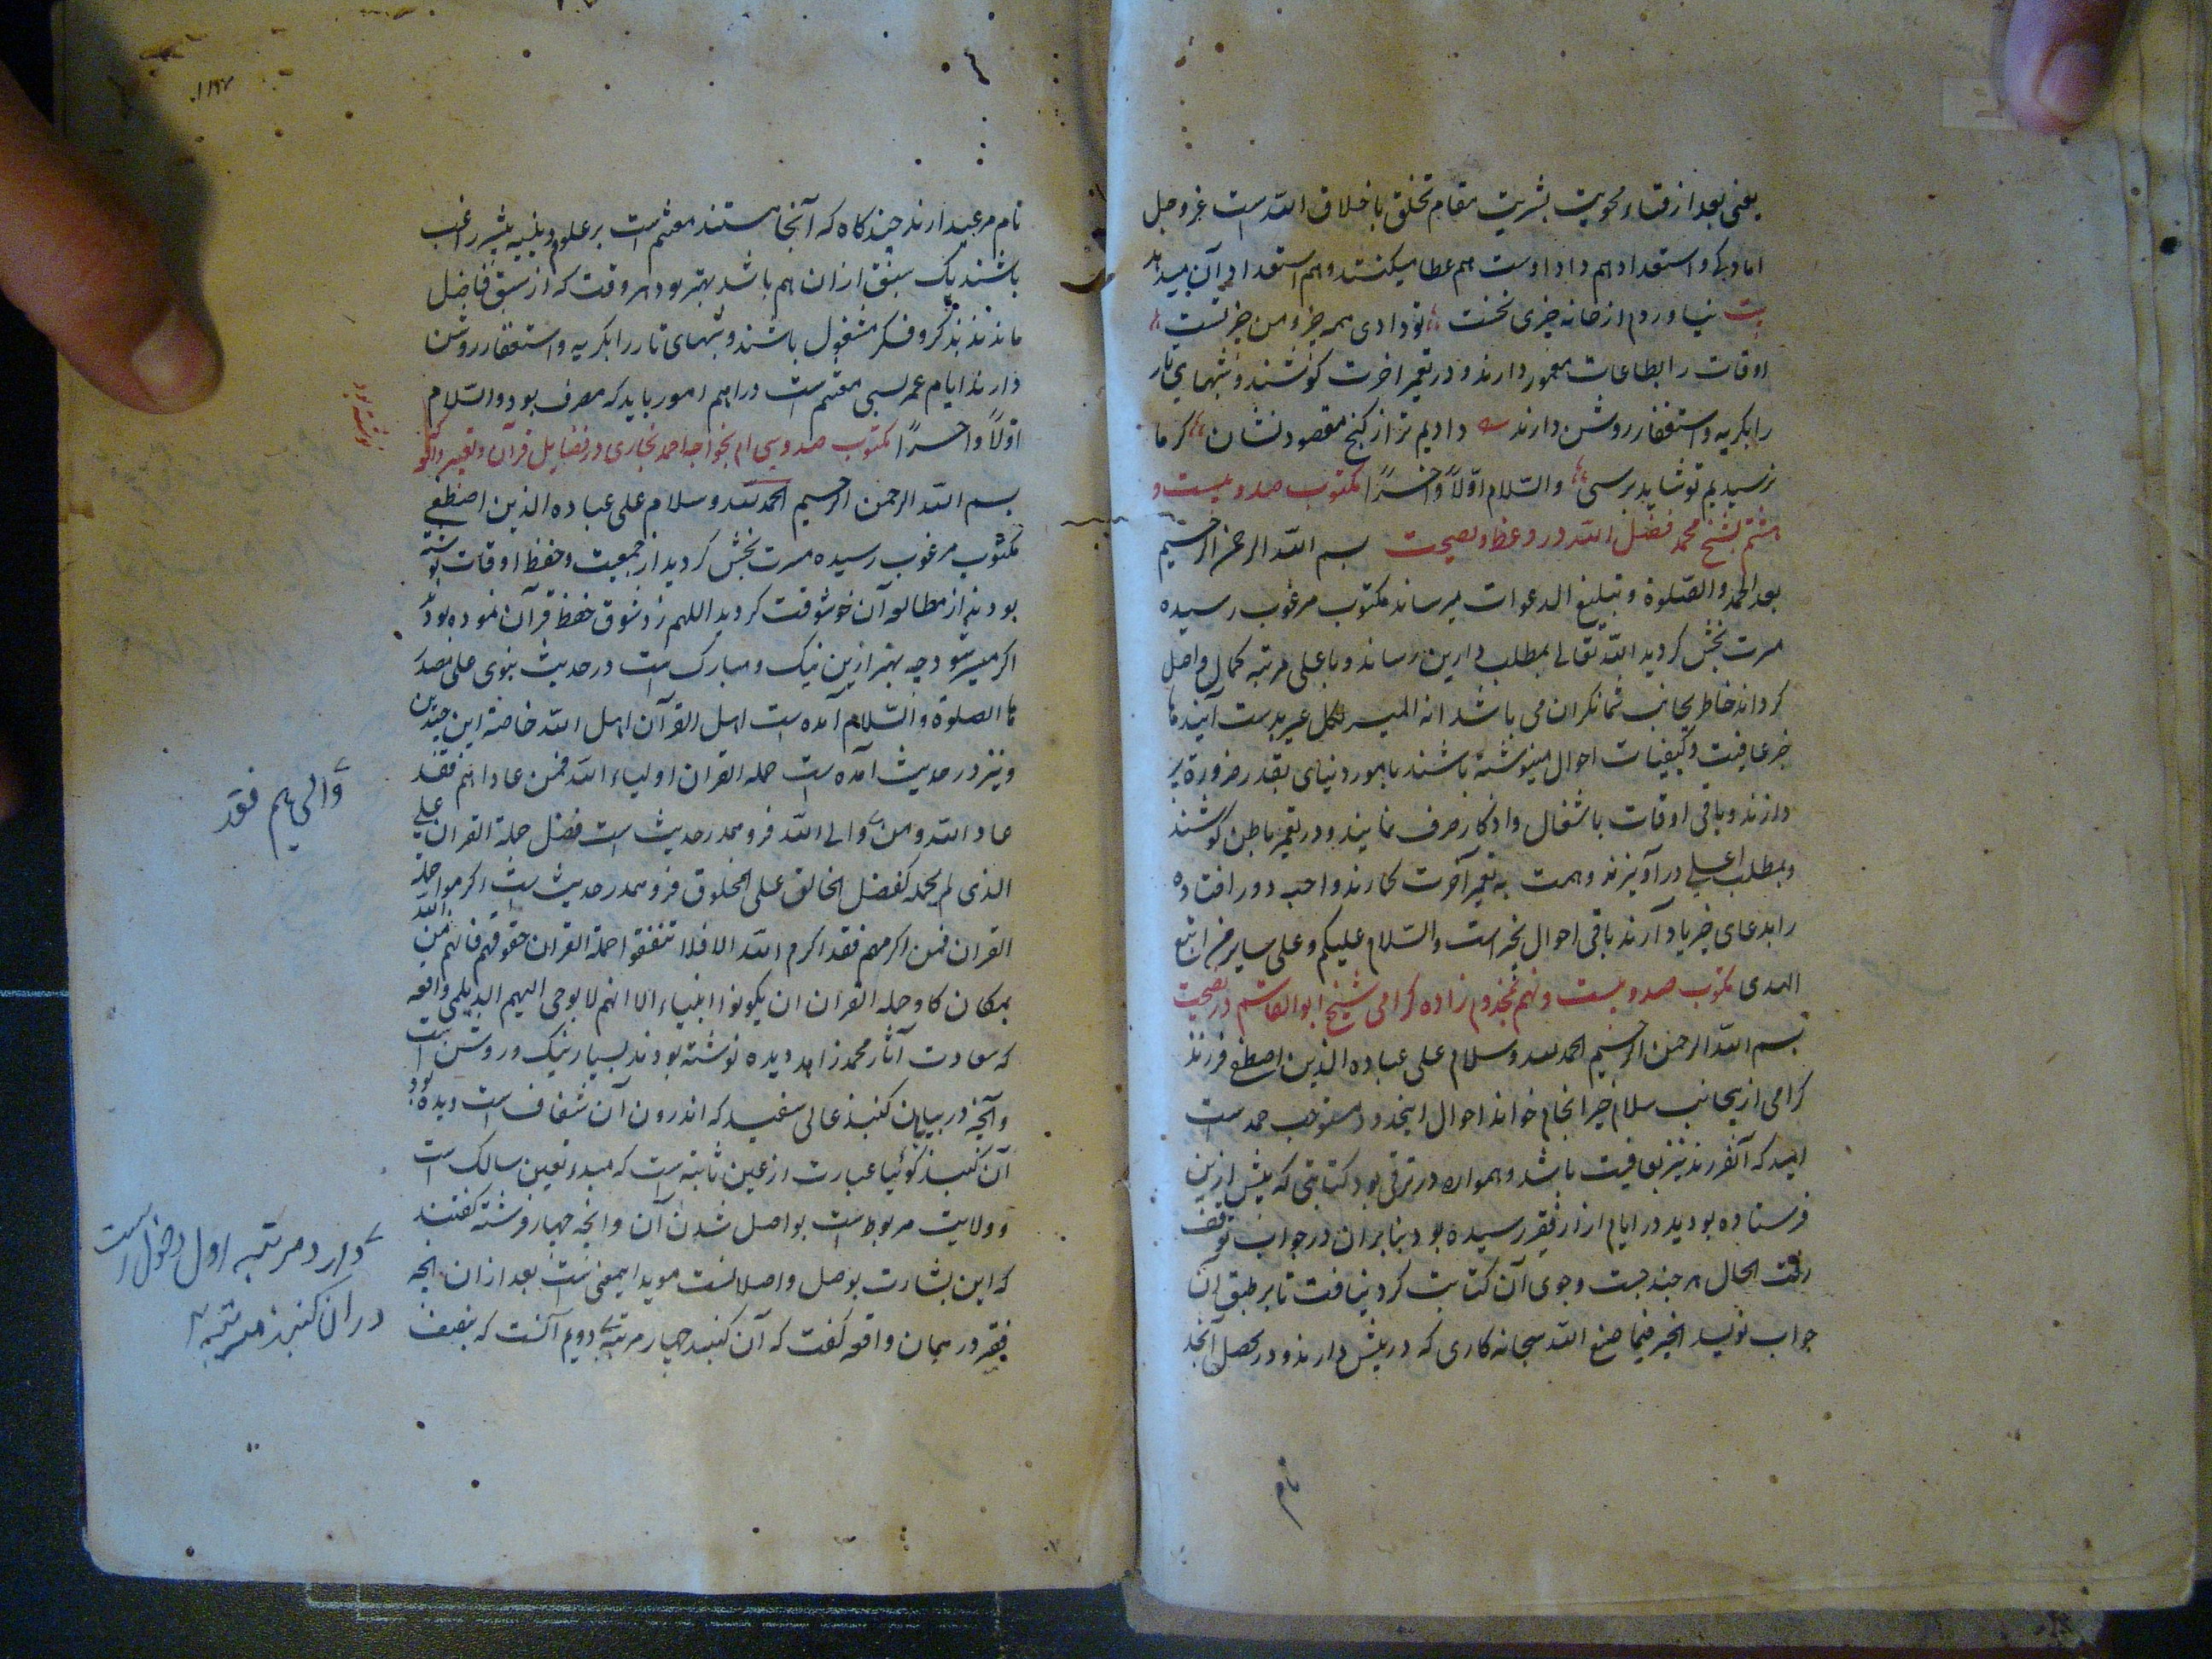 یعنی بعد از فنا و محویت بشریت مقام تخلق باخلاق الله است عز و جل
اما دیگر و استعداد هم داد اوست هم عطا میکنند و هم استعداد آن میدهد
بیت نیاوردم از خانه چیزی نخست تو دادی همه چیز و من چیز تست
اوقات را بطاعات معمور دارند و در تعمیر اخرت کوشند و شبهای تار
را بکریه و استغفار روشن دارند دادیم ترا از کنج مقصود نشان کر ما
نرسیدیم تو شاید برسی والسلام اولاً و اخراً مکتوب صد و بیست و
هشتم بشیخ محمد فضل الله در وعظ و نصیحت بسم الله الرحمن الرحیم
بعد الحمد والصلوة و تبلیغ الدعوات میرساند مکتوب مرغوب رسیده
مسرت بخش کردید الله تعالی بمطلب دارین رساند و باعلی مرتبه کمال واصل
کرداند خاطر بجانب شما نکران می باشد انه المیسر لکل عسیر بدست آینده ها
خبر عافیت و کیفیات احوال مینوشته باشند بامور دنیای بقدر ضرورة پر
دازند و باقی اوقات باشغال و اذکار صرف نمایند و در تعمیر باطن کوشند
و بمطلب اعلی درآویزند و همت به تعمیر آخرت کمارند و احب دور افتاده
را بدعای خیر یاد آرند باقی احوال بخیر است والسلام علیکم و علی سایر من اتبع
الهدی مکتوب صد و بیست و نهم بمخدوم زاده کرامی شیخ ابوالقاسم در نصیحت
بسم الله الرحمن الرحیم الحمد لله و سلام علی عباده الذین اصطفی فرزند
کرامی ازینجانب سلام خیر انجام خوانند احوال اینحدود مستوجب حمد است
امید که آنفرزند نیز بعافیت باشد و همواره در ترقی بود کتابتی که پیش ازین
فرستاده بودید در ایام ازار فقیر رسیده بود بنابران در جواب توقف
رفت الحال هر چند جست و جوی آن کتابت کرد نیافت تا بر طبق آن
جواب نویسد الخیر فیما صنع الله سبحانه کاری که در پیش دارند و در تحصیل آنجد
تام
نام مرعیدارند چند کاه که آنجا هستند مغتنم است بر علوم دینیه بیشتر راغب
باشند یک سبق ازان هم باشد بهتر بود هر وقت که از سبق فاضل
مانند بذکر و فکر مشغول باشند و شبهای تار را بکریه و استغفار روشن
دارند ایام عمر بسی مغتنم است در اهم امور باید که مصرف بود والسلام
اولاً و اخراً مکتوب صد و سی ام بخواجه احمد بخاری در فضایل قرآن و تعبیر واقعه
بسم الله الرحمن الرحیم الحمد لله و سلام علی عباده الذین اصطفی
مکتوب مرغوب رسیده مسرت بخش کردید از جمعیت و حفظ اوقات نوشته
بودند از مطالعه آن خوشوقت کردید اللهم زد شوق حفظ قرآن نموده بودند
اکر میسر شود چه بهتر ازین نیک و مبارک است در حدیث نبوی علی مصدر
ها الصلوة والسلام آمده است اهل القرآن اهل الله خاصة این چنین
و نیز در حدیث آمده است حمله القران اولیاء الله فمن عاداهم فقد
عاد الله و من والی الله فرو هم در حدیث است فضل حملة القران علی
الذی لم یحمله کفضل الخالق علی المخلوق فرو هم در حدیث است اکرموا حملة
القران فمن اکرمهم فقد اکرم الله الا فلا تنقصوا حملة القران حقوقهم فانهم من الله
بمکان کاد حمله القران ان یکونوا انبیاء الا انهم لا یوحی الیهم الدیلمی واقعه
که سعادت آثار محمد زاهد دیده نوشته بودند بسیار نیک و روشن است
و آنچه در بیابان کنبذ عالی سفید که اندرون آن شفاف است دیده بود
آن کنبذ کوئیا عبارت از عین ثابته است که مبدء تعین سالک است
و ولایت مربوط است بواصل شدن آن و انچه چهار فرشته کفتند
که این بشارت بوصل و اصلانست موید ایمعنی است بعد ازان انچه
فقیر در همان واقعه کفت که آن کنبد چهار مرتبه دویم آنست که بنصف
والیهم فقد
دارد مرتبه اول دخول است
در ان کنبذ مرتبه